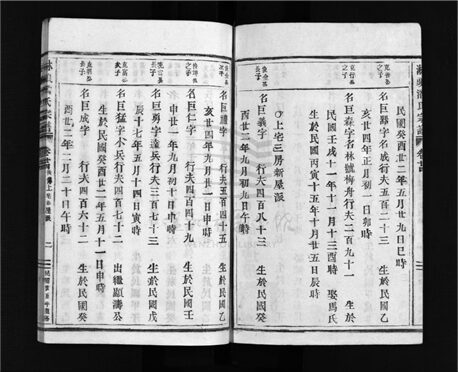 民國癸酉廿二年五月廿九日巳時
克
之子
名巨鄞字名成 行夫五百二十三 生於民國乙
亥廿四年正月初一日卯時
克
之子
名巨森字名林號梅舟行夫二百九十一 生於
民國壬戌十一年十一月十一日酉時 娶馬氏
生於民國丙寅十五年十月廿五日辰時
上宅三房新屋派
長子
名巨義字 行夫四百八十三 生於民國癸
酉廿二年九月初九日午時
次子
名巨禮字 行夫五百四十五 生於民國乙
亥廿四年五月廿一日申時
之子
名巨仁字 行夫四百四十九 生於民國壬
申廿一年九月初十日申時
長子
名巨勇字達兵行夫三百七十三 生於民國戊
辰十七年五月十四日寅時
次子
名巨猛字小兵行夫四百七十二 出繼顯濤公
生於民國癸酉廿二年五月十一日申時
長子
名巨成字 行夫四百六十二 生於民國癸
酉廿二年二月二十日午時
氏宗譜
卷廿四
上宅
二